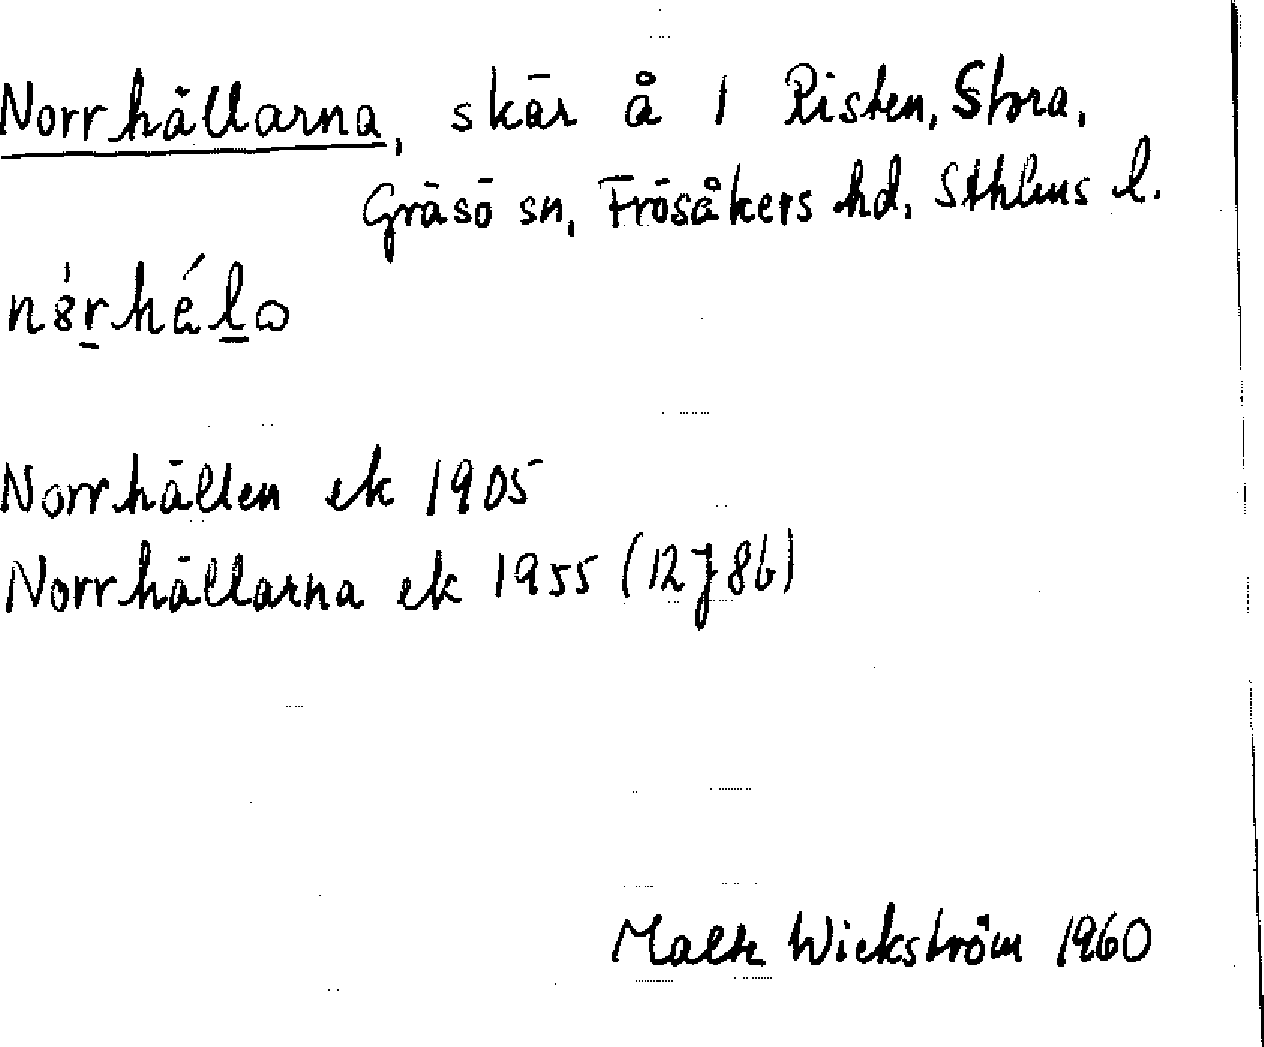 Norrhällarna, skär å 1 Risten, Stora,
Gräsö sn, Frösåkers hd, Sthlms l.
Norrhällen ek 1905
Norrhällarna ek 1955 (12J8b)
Malte Wickström 1960